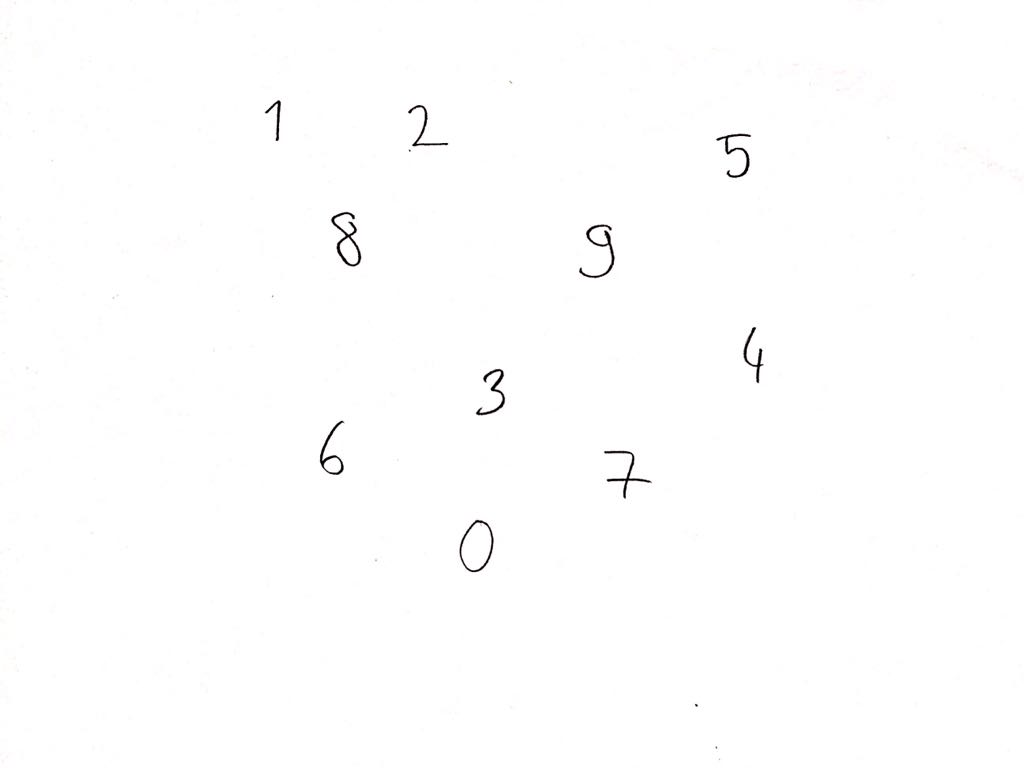 1 2 5
8 9
4
3
6 7
0